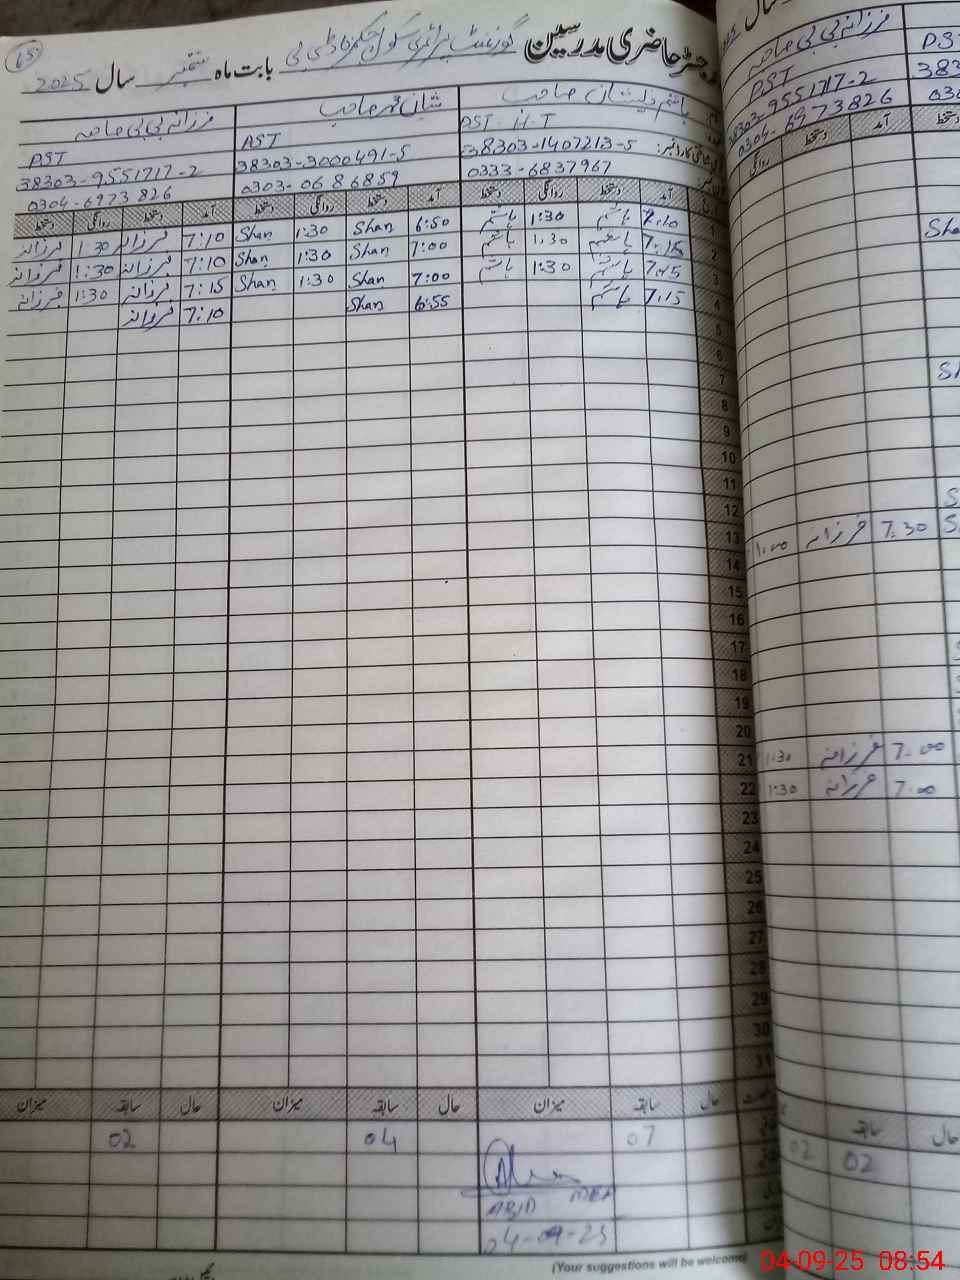 رجسٹر حاضری مدرسین گورنمنٹ پرائمری سکول بابت ماہ ستمبر سال 2025
ہاشم ذیشان صاحب
شان محمد صاحب
فرزانہ بی بی صاحبہ
PST - H-T
PST
PST
38303-1407213-5
38303-3000491-5
38303-9551717-2
0333-6837967
0303-0686859
0304-6973826
آمد دستخط روانگی دستخط آمد دستخط روانگی دستخط آمد دستخط روانگی دستخط
1 7:10 ہاشم 1:30 ہاشم 6:50 Shan 1:30 Shan 7:10 فرزانہ 1:30 فرزانہ
2 7:15 ہاشم 1:30 ہاشم 7:00 Shan 1:30 Shan 7:10 فرزانہ 1:30 فرزانہ
3 ہاشم 1:30 ہاشم 7:00 Shan 1:30 Shan 7:15 فرزانہ 1:30 فرزانہ
4 7:15 ہاشم 6:55 Shan 7:10 فرزانہ
5
6
7
8
9
10
11
12
13
14
15
16
17
18
19
20
21
22
23
24
25
26
27
28
29
30
31
حال سابقہ میزان حال سابقہ میزان حال سابقہ میزان
07 04 02
ABID MEA
04-09-25
(Your suggestions will be welcome
سال
فرزانہ بی بی صاحبہ
PST
38303-9551717-2
0304-6973826
آمد دستخط روانگی
7:30 فرزانہ 1:00
7:00 فرزانہ 1:30
7:00 فرزانہ 1:30
حال سابقہ
02 02
04-09-25 08:54